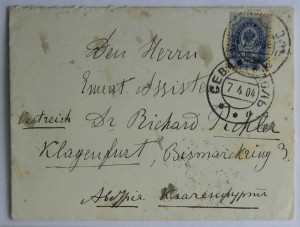 Den Herrn
Emerit. Assistent
Oestreich
Dr Richard Pichler
Klagenfurt, Bismarckring 3.
Австрія Клагенфуртъ
7 4 04